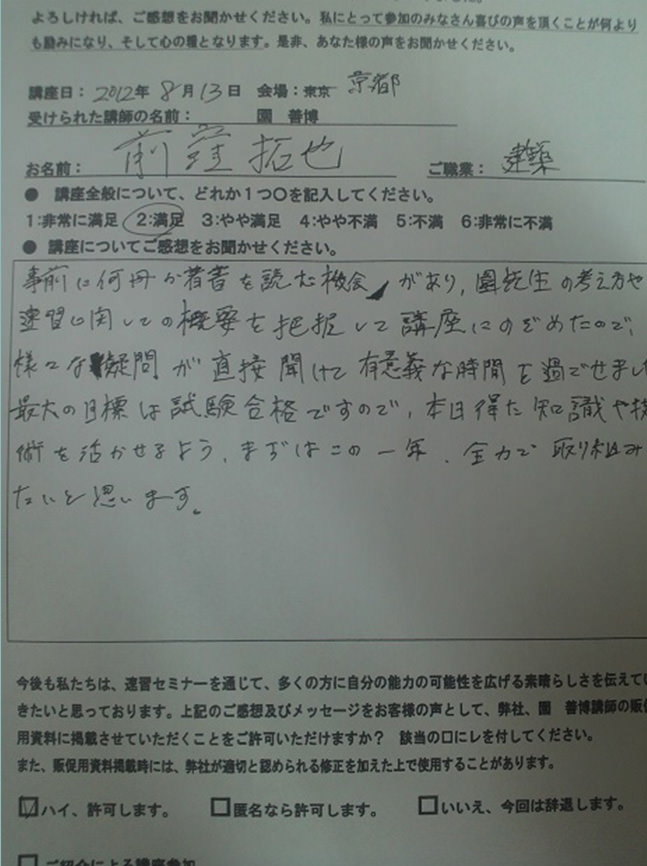 よろしければ、ご感想をお聞かせください。私にとって参加のみなさん喜びの声を頂くことが何より
も励みになり、そして心の糧となります。是非、あなた様の声をお聞かせください。
講座日：2012年 8月13日 会場：東京 京都
受けられた講師の名前： 園 善博
お名前： 前窪 拓也 ご職業： 建築
● 講座全般について、どれか１つ〇を記入してください。
1:非常に満足 2:満足 3:やや満足 4:やや不満 5:不満 6:非常に不満
● 講座についてご感想をお聞かせください。
事前に何冊か著書を読む機会があり、園先生の考え方や
速習に関しての概要を把握して講座にのぞめたので、
様々な疑問が直接聞けて有意義な時間を過ごせまし
最大の目標は試験合格ですので、本日得た知識や技
術を活かせるよう、まずはこの一年、全力で取り組み
たいと思います。
今後も私たちは、速習セミナーを通じて、多くの方に自分の能力の可能性を広げる素晴らしさを伝えてい
きたいと思っております。上記のご感想及びメッセージをお客様の声として、弊社、園 善博講師の販促
用資料に掲載させていただくことをご許可いただけますか？ 該当の口にレを付してください。
また、販促用資料掲載時には、弊社が適切と認められる修正を加えた上で使用することがあります。
☑ハイ、許可します。 □匿名なら許可します。 □いいえ、今回は辞退します。
□ご紹介による講座参加